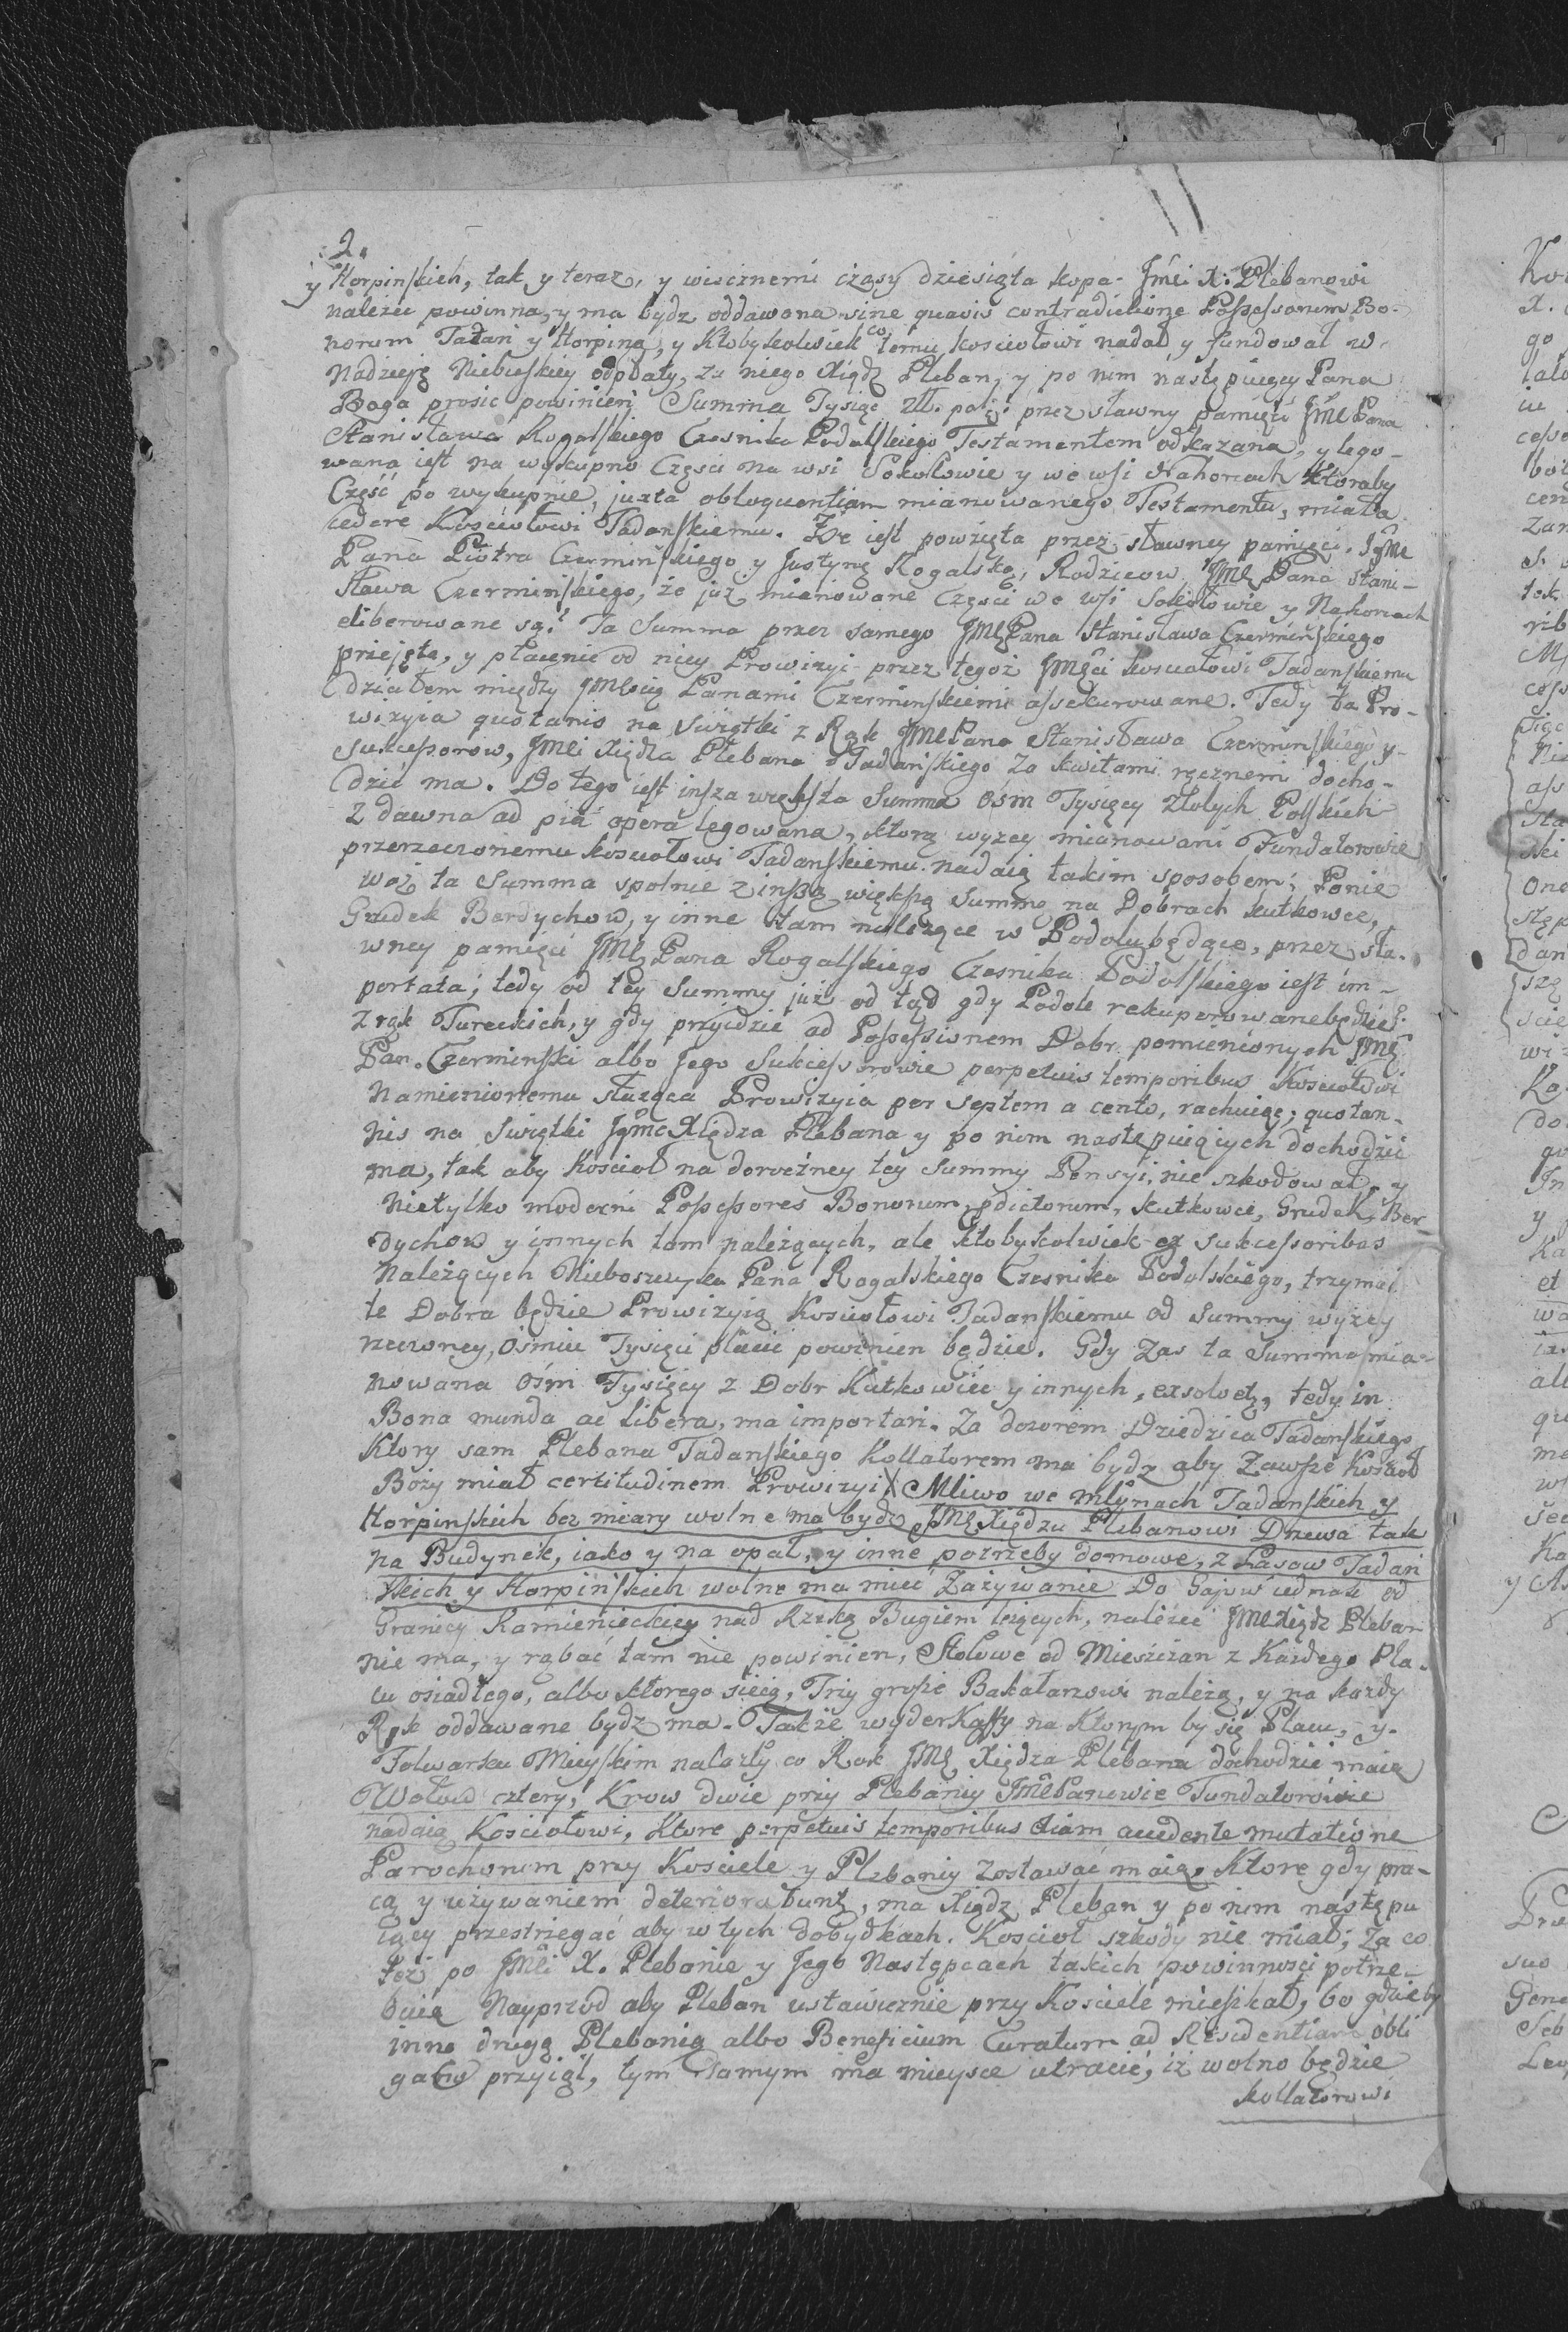 2.
y Horpinskich, tak y teraz, y wiecznemi czasy dziesięta kopa Jmći X: Plebanowi
należeć powinna, y ma bydz oddawana sine quavis contradictione Possessorum Bo-
norum Tadań y Horpina, y ktobykolwiek co temu kosciołowi nadał y fundował w
nadzieię Niebieskiey odpłaty, za niego Xiądz Pleban, y po nim następuiący Pana
Boga prosic powinien Summa Tysiąc zł. pol: przez sławny pamięci JMć Pana
Stanisława Rogalskiego Czesnika Podolskiego Testamentem odkazana, y lego-
waną iest na wykupno Częsci na wsi Sokołowie y we wsi Nahorcach ktoraby
Część po wykupnie, juxta obloquentiam mianowanego Testamentu, miała
cedere Kosciołowi Tadanskiemu. Że iest powzięta przez sławney pamięci Jgmc
Pana Piotra Czerminskiego y Justynę Rogalską, Rodzicow JMć Pana Stani-
sława Czerminskiego, że już mianowane Częsci we wsi Sokołowie y Nahorcach
eliberowane są. Ta Summa przez samego JMć Pana Stanisława Czerminskiego
przejęta, y płacenie od niey Prowizyi przez tegoż JMści kosciołowi Tadanskiemu
działem między JMścią Panami Czerminskiemi assekurowane. Tedy ta Pro-
wizyia quotanis na Swiętki z Rąk JMć Pana Stanisława Czerminskiego y
Sukcessorow, JMći Xiędza Plebana Tadańskiego za kwitami ręcznemi docho-
dzić ma. Do tego iest insza większa Summa Ośm Tysięcy Złotych Polskich
z dawna ad pia opera legowana, którą wyżey mianowani Fundatorowie
przerzeczonemu kosciołowi Tadanskiemu nadaią takim sposobem: Ponie
waż ta Summa spolnie z inszą większą Summę na Dobrach Kutkowce,
Grudek Berdychow, y inne tam należące w Podolu będące, przez sła-
wney pamięci JMć Pana Rogalskiego Czesnika Podolskiego iest im-
portata; tedy od tey Summy już od tąd gdy Podole rekuperowane będzie
z rąk Tureckich, y gdy przyidzie ad Possessionem Dobr pomienionych JMć
Pan Czerminski albo Jego Sukcessorowie perpetuis temporibus Kosciołowi
Namienionemu służąca Prowizyia per septem a cento, rachuiąc; quotan-
nis na Swiętki Jgmć Xiędza Plebana y po nim następuiących dochodzić
ma, tak aby Kościoł na doroczney tey Summy Pensyi nie szkodował, y
nietylko moderni Possessores Bonorum pdictorum, Kutkowce, Grudek, Ber-
dychow y innych tam należących, ale ktobykolwiek ex sukcessoribus
Należących Nieboszczyka Pana Rogalskiego Czesnika Podolskiego, trzymał
te Dobra będzie Prowizyią Kosciołowi Tadanskiemu od Summy wyżey
rzeczoney, ośmiu Tysięcy płacić powinien będzie. Gdy zas ta Summa mia-
nowana Ośm Tysięcy z Dobr Kutkowiec y innych, exsolvetz, tedy in
Bona munda ac libera, ma importari. Za dozorem Dziedzica Tadanskiego
Ktory sam Plebana Tadanskiego Kollatorem ma bydz aby Zawsze Kościoł
Boży miał certitudinem Prowizyi. Mliwo we młynach Tadanskich y
Horpinskich bez miary wolne ma bydz JMć Xiędzu Plebanowi Drzewa tak
na Budynek, iako y na opał, y inne potrzeby domowe, z Lasow Tadań
skich y Horpinskich wolne ma mieć Zażywanie Do Gajow iednak od
Granicy Kamienieckiey nad Rzeką Bugiem leżących, należeć JMć Xiądz Pleban
nie ma, y rąbać tam nie powinien, Stołowe od Mieszczan z Każdego Pla-
cu osiadłego, albo ktorego sieią, Trzy grosze Bakałarzowi należą, y na każdy
Rok oddawane bydz ma. Także wyderkaffy na ktorym by się Placu, y
Folwarku Mieyskim nalazły co Rok JMć Xiędza Plebana dochodzić maią
Wołow cztery, Krow dwie przy Plebaniy JMć Panowie Fundatorowie
nadaią Kosciołowi, ktore perpetuis temporibus etiam accedente mutatione
Parochorum przy Kosciele y Plebaniy zostawać maią. Ktore gdy pra-
cą y używaniem deteriorabuntz, ma Xiądz Pleban y po nim następu
iący przestrzegać aby w tych dobydkach Kościoł szkody nie miał; za co
też po JMći X. Plebanie y Jego Następcach takich powinności potrze-
buią Nayprzod aby Pleban ustawicznie przy Kosciele mieszkał, bo gdzieby
inną drugą Plebanią albo Beneficium Curatum ad Residentiam obli
gans przyiął, tym samym ma mieysce utracić, iż wolno będzie
kollatorowi